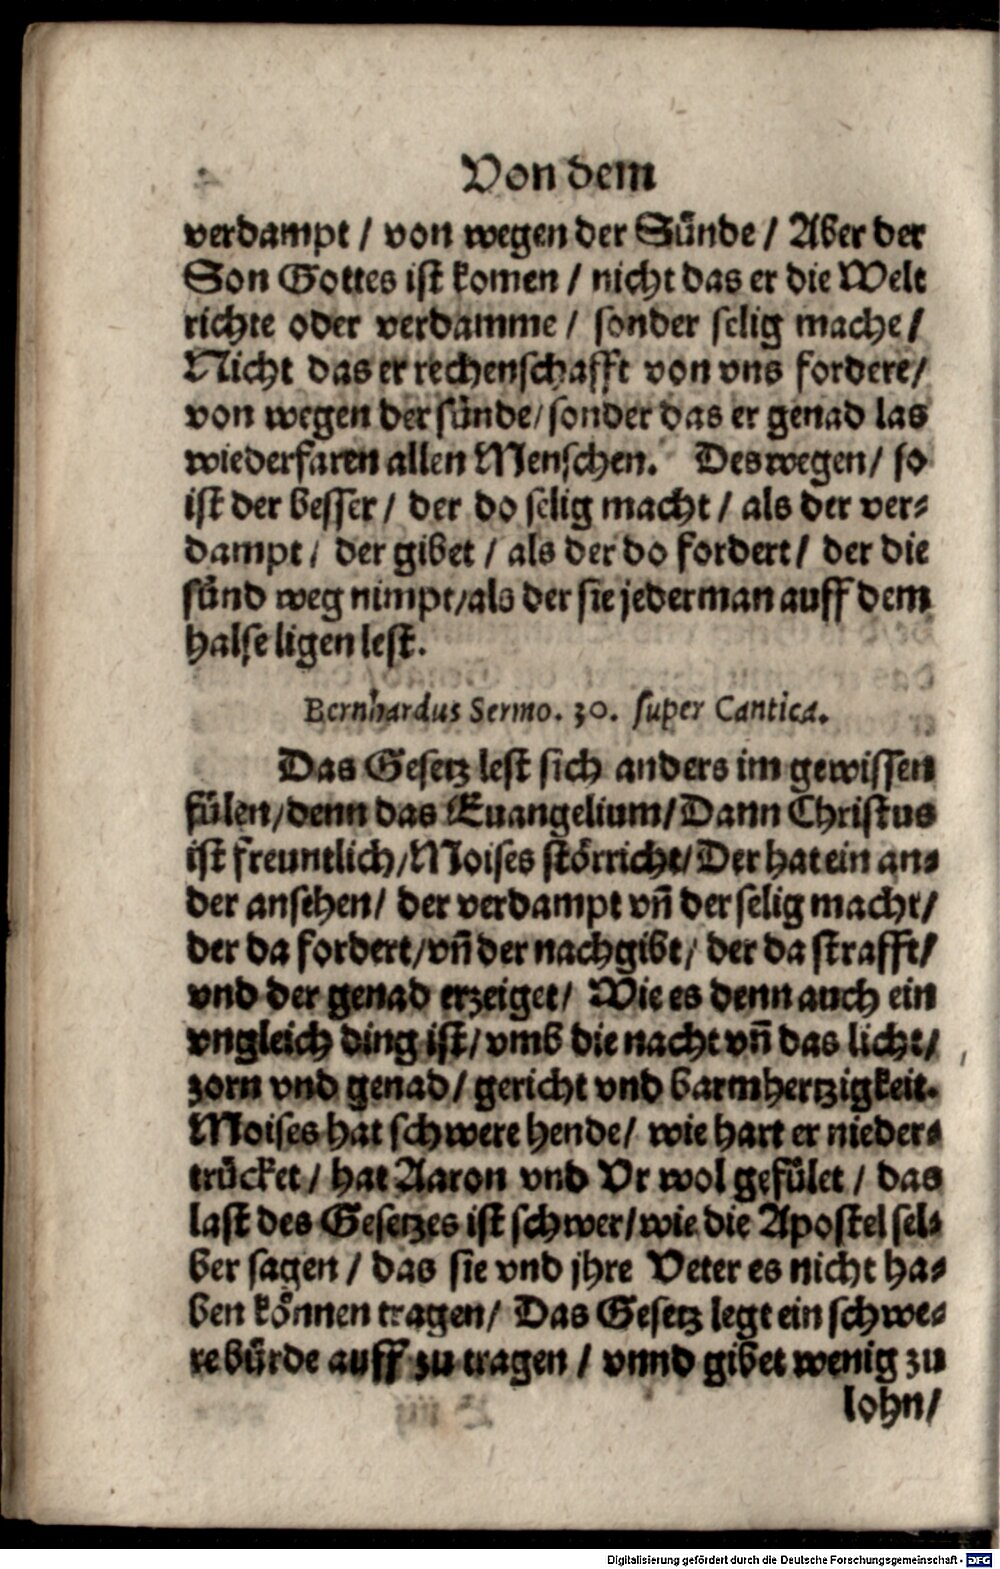 Von dem
verdampt / von wegen der Sünde / Aber der
Son Gottes ist komen / nicht das er die Welt
richte oder verdamme / sonder selig mache /
Nicht das er rechenschafft von vns fordere /
von wegen der sünde / sonder das er genad las
wiederfaren allen Menschen. Deswegen / so
ist der besser / der do selig macht / als der ver⸗
dampt / der gibet / als der do fordert / der die
sünd weg nimpt / als der sie jederman auff dem
halse ligen lest.
Bernhardus Sermo. 30. super Cantica.
Das Gesetz lest sich anders im gewissen
fülen / denn das Euangelium / Dann Christus
ist freuntlich / Moises störricht / Der hat ein an⸗
der ansehen / der verdampt vn̄ der selig macht /
der da fordert / vn̄ der nachgibt / der da strafft /
vnd der genad erzeiget / Wie es denn auch ein
vngleich ding ist / vmb die nacht vn̄ das licht /
zorn vnd genad / gericht vnd barmhertzigkeit.
Moises hat schwere hende / wie hart er nieder⸗
trücket / hat Aaron vnd Vr wol gefület / das
last des Gesetzes ist schwer / wie die Apostel sel⸗
ber sagen / das sie vnd jhre Veter es nicht ha⸗
ben können tragen / Das Gesetz legt ein schwe⸗
re bürde auff zu tragen / vnnd gibet wenig zu
lohn /
Digitalisierung gefördert durch die Deutsche Forschungsgemeinschaft - DFG